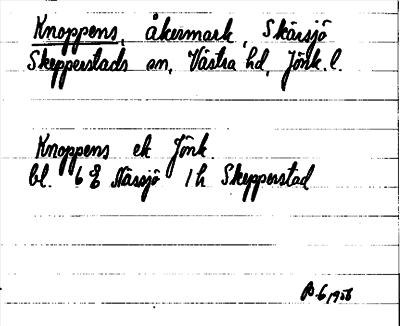 Knoppens, åkermark, Skärsjö
Skepperstads sn, Västra hd, Jönk. l.
Knoppens ek Jönk.
bl. 6 E Nässjö 1 h Skepperstad
1956